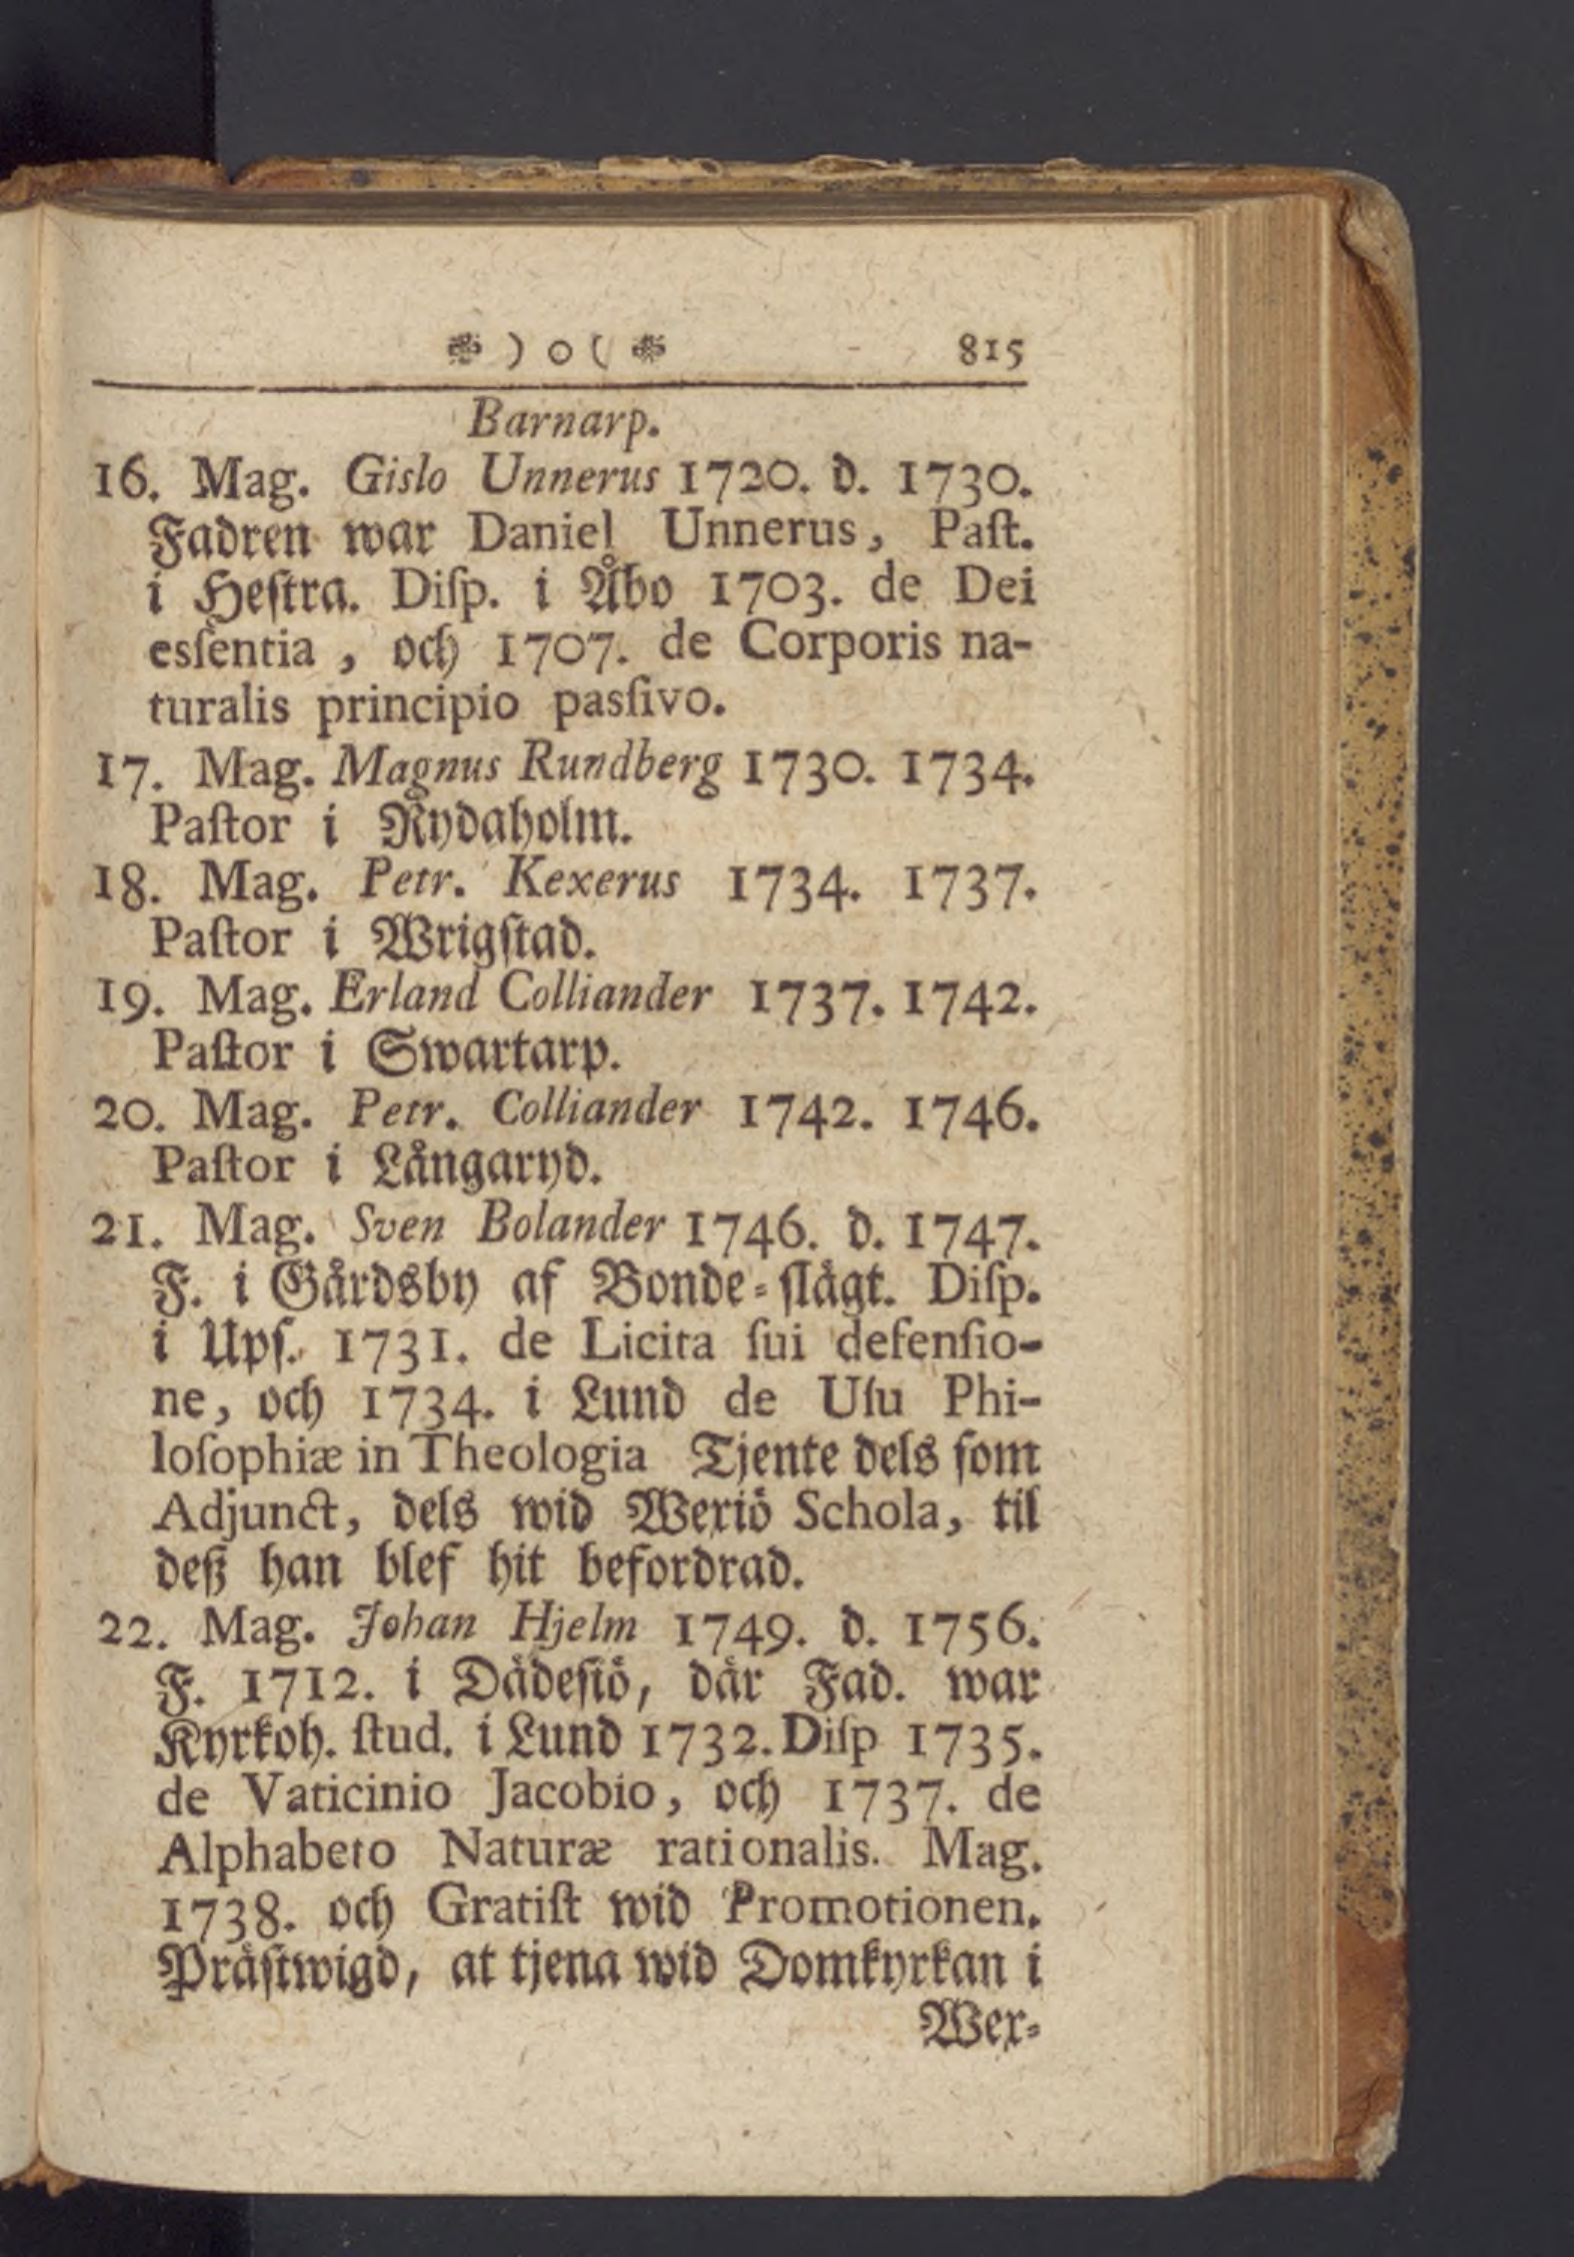 ❉ ) o ( ❉ 815
Barnarp.
16. Mag. Gislo Unnerus 1720. d. 1730.
Fadren war Daniel Unnerus, Paſt.
i Heſtra. Diſp. i Åbo 1703. de Dei
esſentia, och 1707. de Corporis na-
turalis principio pasſivo.
17. Mag. Magnus Rundberg 1730. 1734.
Paſtor i Rydaholm.
18. Mag. Petr. Kexerus 1734. 1737.
Paſtor i Wrigſtad.
19. Mag. Erland Colliander 1737. 1742.
Paſtor i Swartarp.
20. Mag. Petr. Colliander 1742. 1746.
Paſtor i Långaryd.
21. Mag. Sven Bolander 1746. d. 1747.
F. i Gårdsby af Bonde-ſlägt. Diſp.
i Upſ. 1731. de Licita ſui defenſio-
ne, och 1734. i Lund de Uſu Phi-
loſophiæ in Theologia Tjente dels ſom
Adjunct, dels wid Wexiö Schola, til
deß han blef hit befordrad.
22. Mag. Johan Hjelm 1749. d. 1756.
F. 1712. i Dädeſiö, där Fad. war
Kyrkoh. ſtud. i Lund 1732. Diſp 1735.
de Vaticinio Jacobio, och 1737. de
Alphabeto Naturæ rationalis. Mag.
1738. och Gratiſt wid Promotionen.
Präſtwigd, at tjena wid Domkyrkan i
Wex-